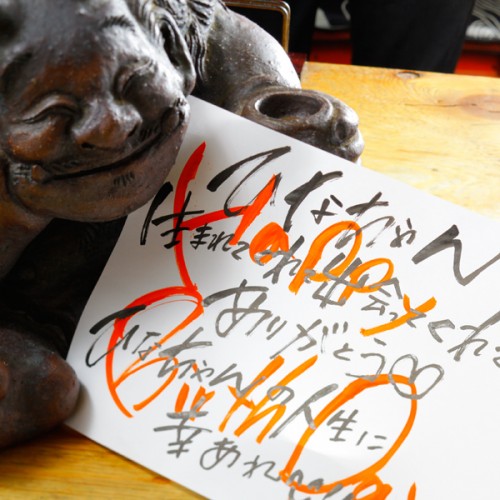 ひなちゃん
生まれてきれ出会ってくれて
ありがとう∞
ひなちゃんの人生に
幸あれ〜
Happy
Birth Day